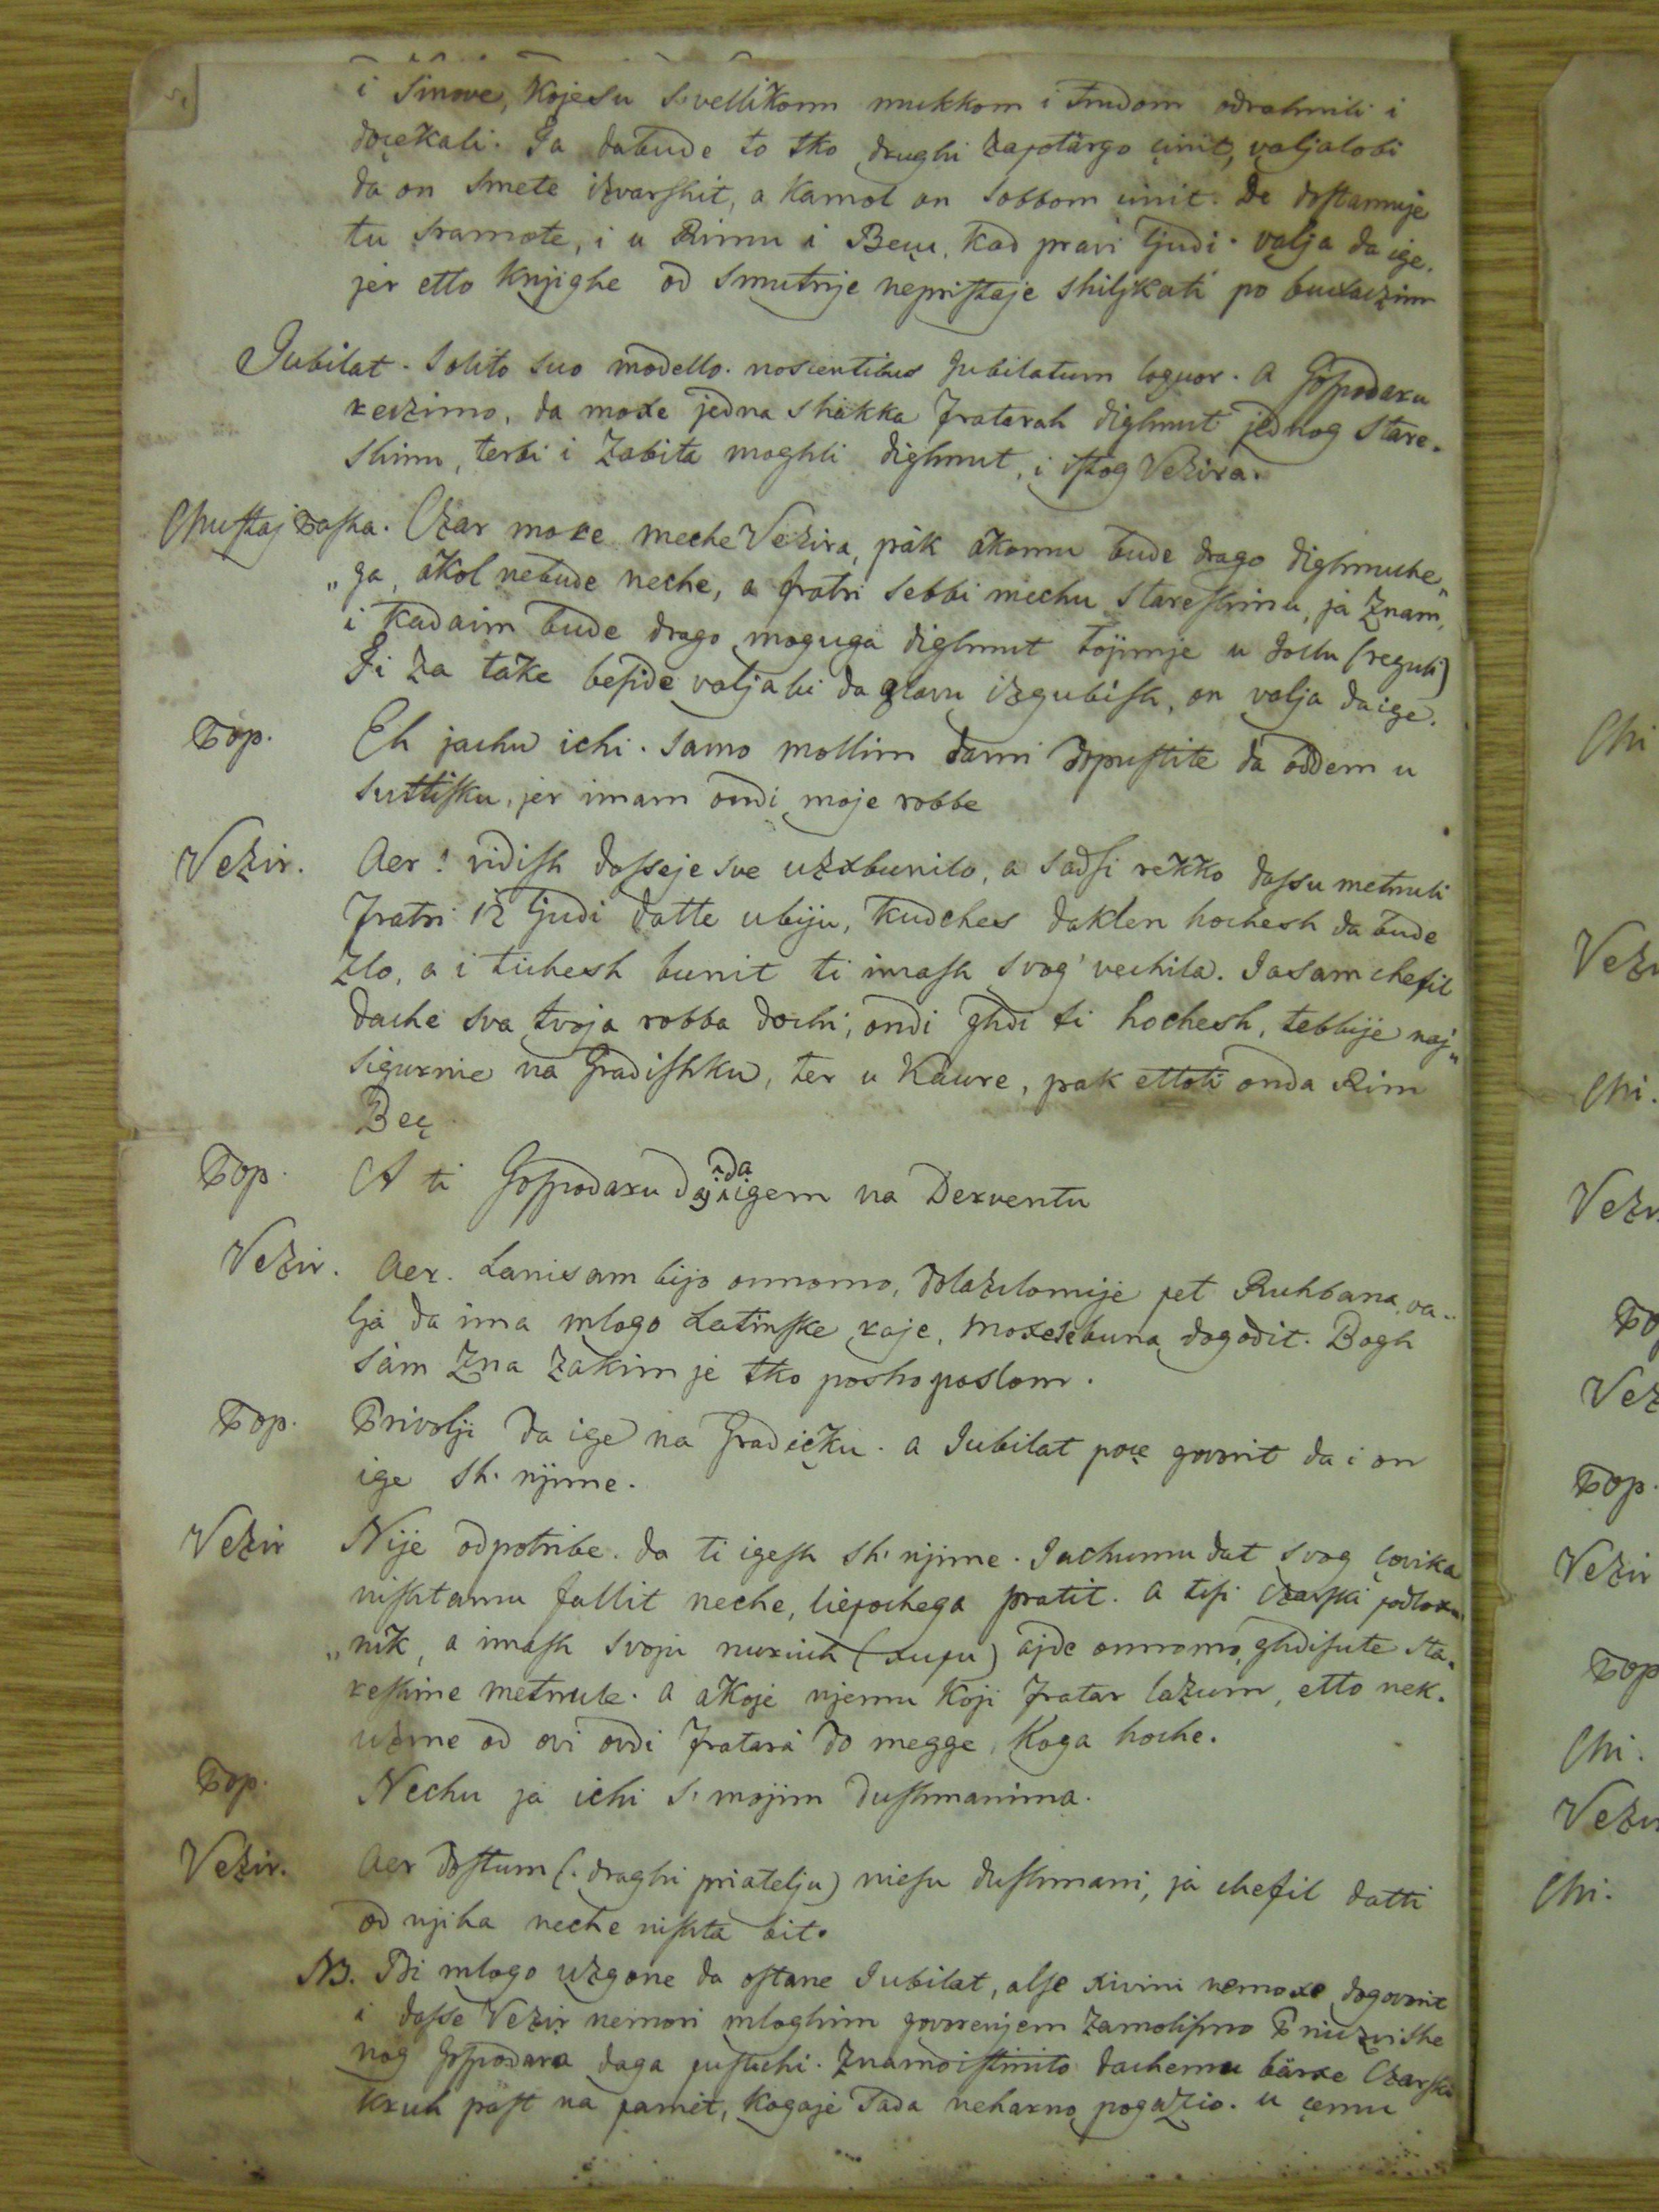 i Sinove, Kojesu s. vellikom mukkom i trudom odrahnili i
doçekali. Ja dabude to tko drughi zapotärgo çinit, valjalobi
da on smete izvarshit, a kamol on sobbom çinit. De dostamuje
tu sramote, i u Rimu i Beçu, kad pravi ljudi. valja da ige.
jer etto knjighe od smutnje nepristaje shiljkati po
Jubilat. Solito suo modello. noscentibus Jubilatum loquor. a Gospodaru
rerzimo, da moxe jedna shakka fratarah dighnut jednog stare-
shinu, terbi i Zabita moghli dighnut, i istog Vezira.
Chustaj Pasha. Czar moxe meche Vezira, pak akomu bude drago dighnuche„
„ga, akol nebude neche, a fratri sebbi mechu stareshinu, ja znam,
i kadaim bude drago moguga dighnut tojimje u Jollu (reguli)
Ti za take beside valjabi da glavu izgubish, on valja da ige.
Pop. Eh jachu ichi. Samo mollim dami dopustite da oddem u
Suttisku, jer imam ondi moje robbe
Vezir. Aer! vidish dasseje sve uzxbunilo, a sadsi rekko dassu metnuli
fratri 12 ljudi datte ubiju, kudches daklen hochesh da bude
Zlo, a i tichesh bunit ti imash svog' vechila. Jasam chefil
dache sva tvoja robba dochi, ondi ghdi ti hochesh, tebbije naj„
sigurnie na Gradishku, ter u Kaure, pak ettoti onda Rim
Beç
Pop. A ti Gospodaru daj da igem na Derventu
Vezir. Aer. Lanisam bijo onnomo, dolazilomije pet Ruhbana, va„
lja da ima mlogo Latinske raje, moxesebuna dogodit. Bogh
sám zna zakim je tko posho poslom.
Pop. Privolji da ige na Gradiçku. a Jubilat poçe govorit da i on
ige sh. njime.
Vezir Nije odpotribe. da ti igesh sh. njime. Jachumu dat svog çovika
nishtamu fallit neche, liepochega pratit. a tisi Czarski podlox„
„nik, a imash svoju nuriuh (xupu) ajde onnomo, ghdisute sta„
reshine metnule. a akoje njemu koji fratar lazum, etto nek.
uzme od ovi ovdi fratará do megge, koga hoche.
Pop. Nechu ja ichi s. mojim dushmanima.
Vezir. Aer dostum (. draghi priatelju) niesu dushmani, ja chefil datti
od njiha neche nishta bit.
NB. Bi mlogo uzgone da ostane Jubilat, alse xivini nemoxe dogovorit
i dasse Vezir nemori mloghim govorenjem zamolismo Priuzvishe
nog Gospodara daga pustichi. Znamoistinito dachemu bärxe Czarski
kruh past na pamet, kogaje Tada neharno pogazio. u çemu